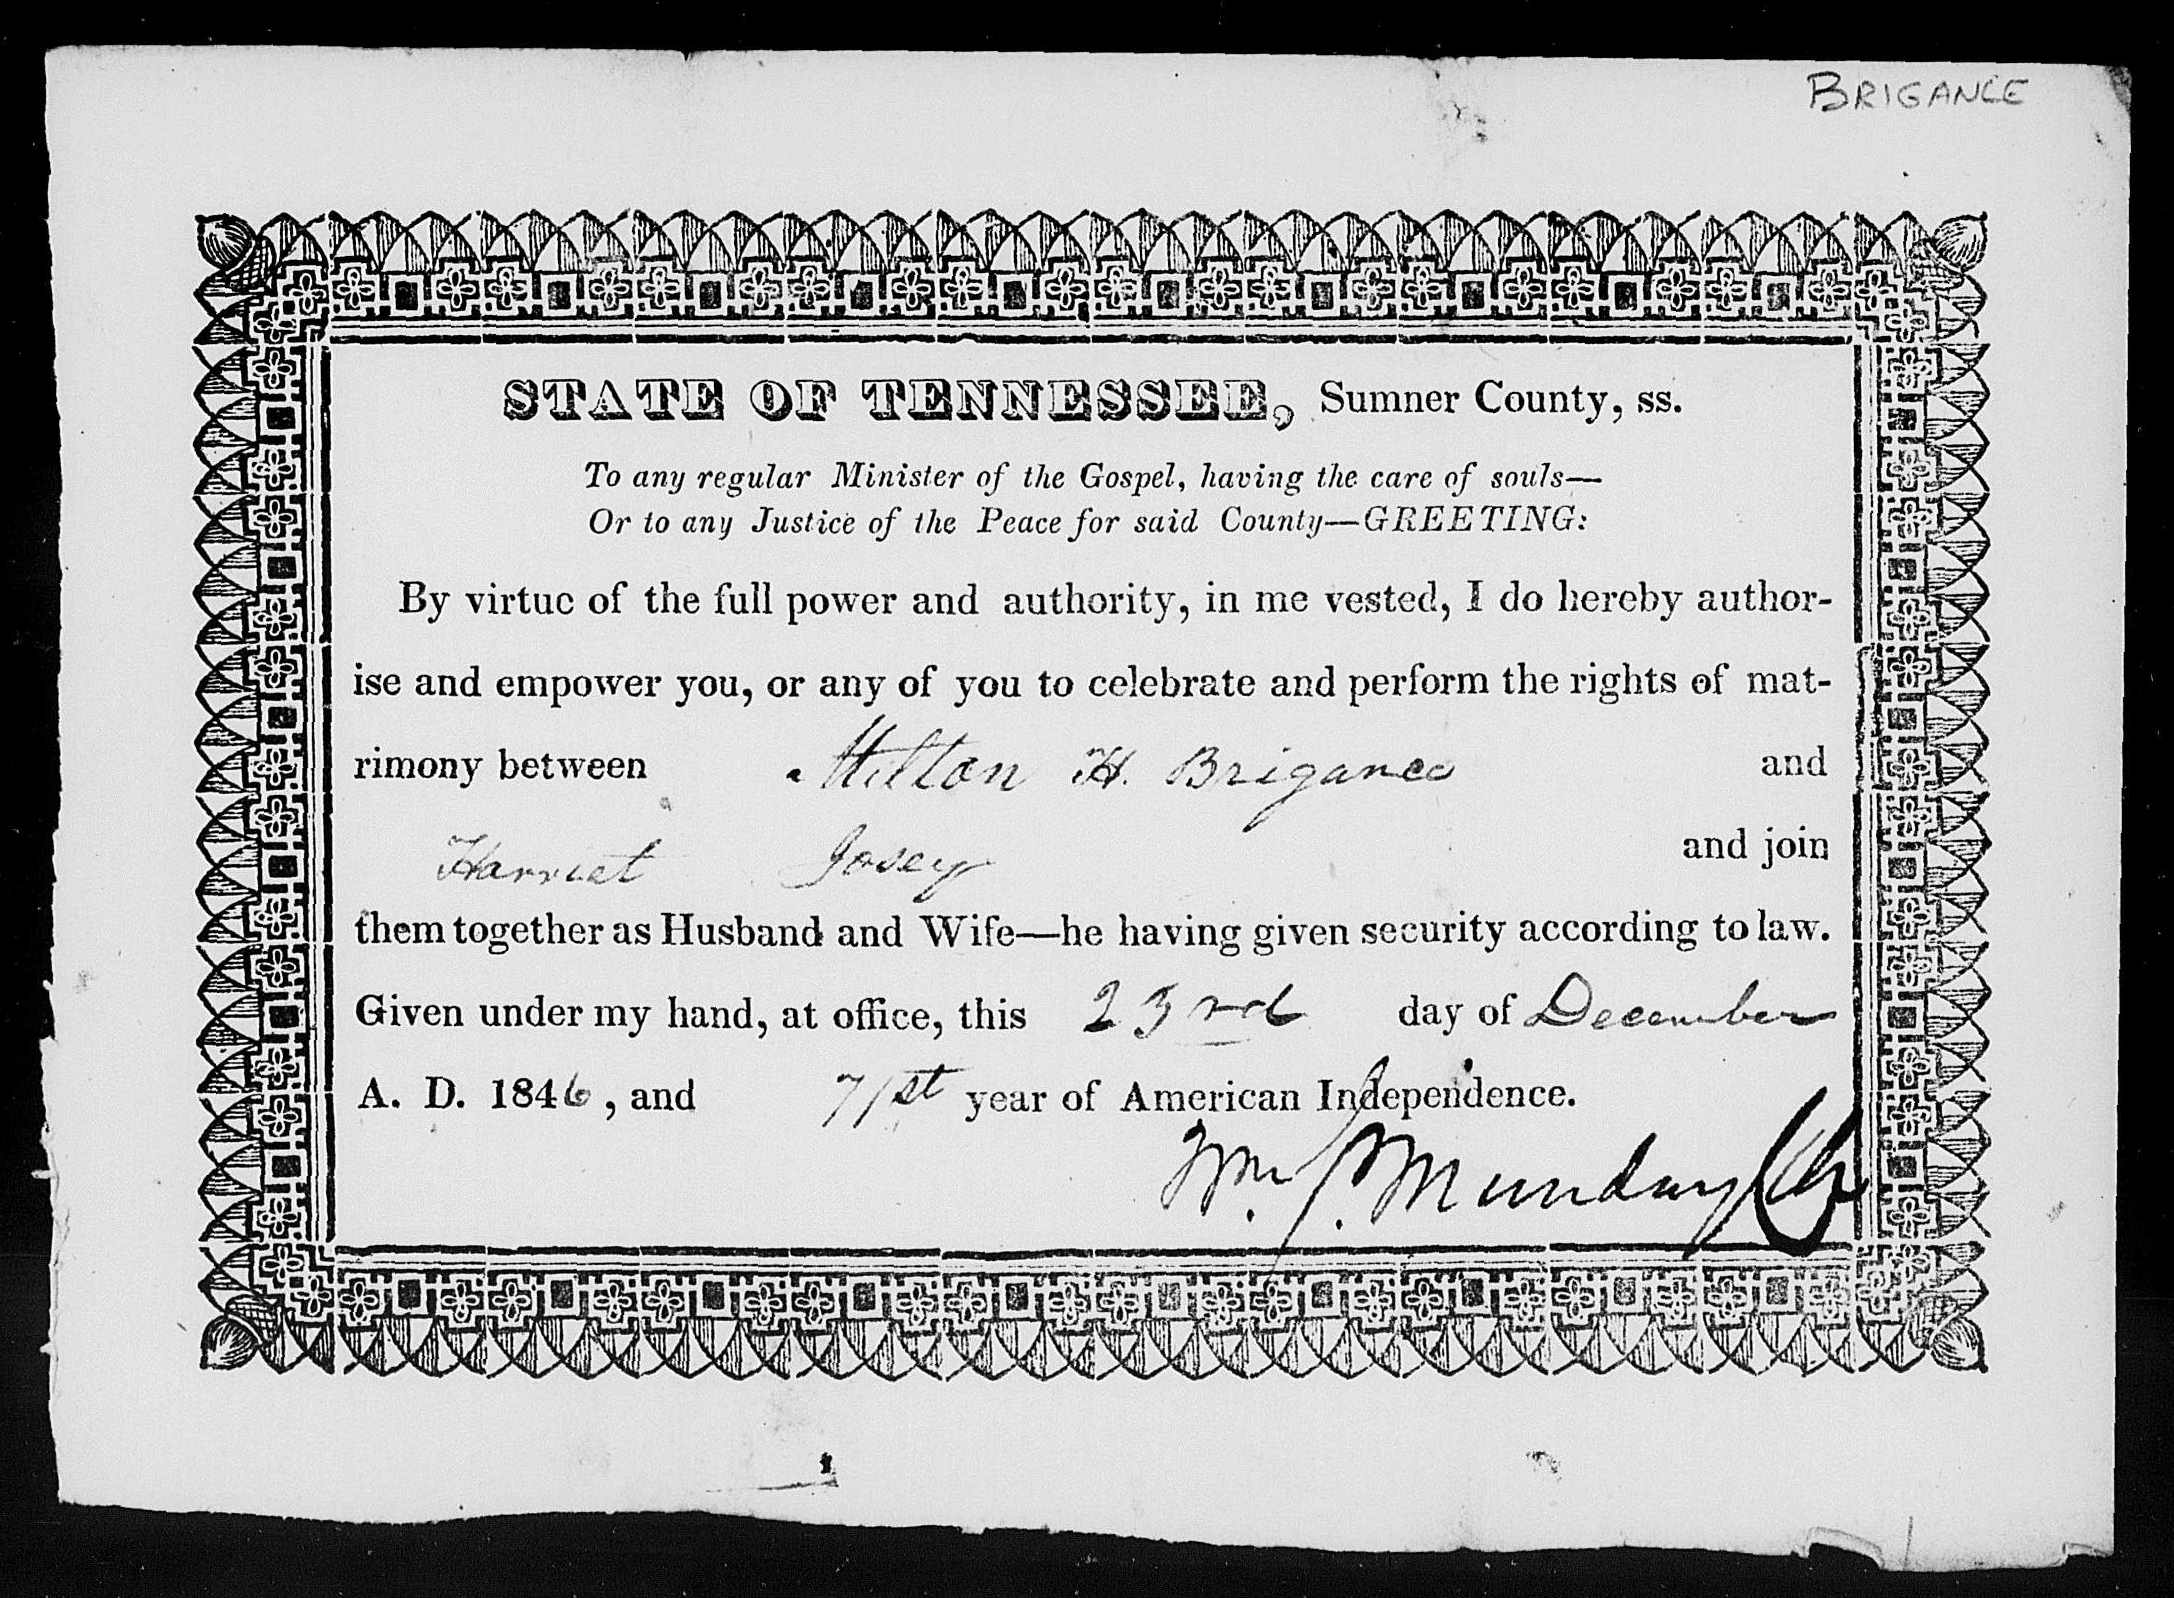 BRIGANCE
STATE OF TENNESSEE, Sumner County, ss.
To any regular Minister of the Gospel, having the care of souls—
Or to any Justice of the Peace for said County—GREETING:
By virtue of the full power and authority, in me vested, I do hereby author-
ise and empower you, or any of you to celebrate and perform the rights of mat-
rimony between Milton H. Brigance and
Harriet Josey and join
them together as Husband and Wife—he having given security according to law.
Given under my hand, at office, this 23rd day of December
A. D. 1846, and 71st year of American Independence.
Wm. J. Munday Clk